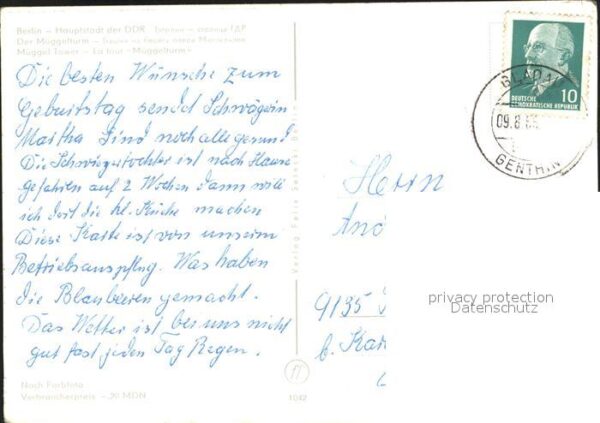 Berlin – Hauptstadt der DDR
Der Müggelturm
Müggel Tower – La tour «Müggelturm»
Die besten Wünsche zum
Geburtstag sendet Schwägerin
Martha. Sind noch alle gesund
Die Schwiegertochter ist nach Hause
gefahren auf 2 Wochen dann will
ich dort die kl. Küche machen
Diese Karte ist von unserem
Betriebsausflug. Was haben
die Blaubeeren gemacht.
Das Wetter ist bei uns nicht
gut fast jeden Tag Regen.
Nach Farbfoto
Verbraucherpreis –,20 MDN
1042
Verlag Felix
10
DEUTSCHE
DEMOKRATISCHE REPUBLIK
09.8.
GENTHIN
Herrn
And
9135
b. Kar
privacy protection
Datenschutz